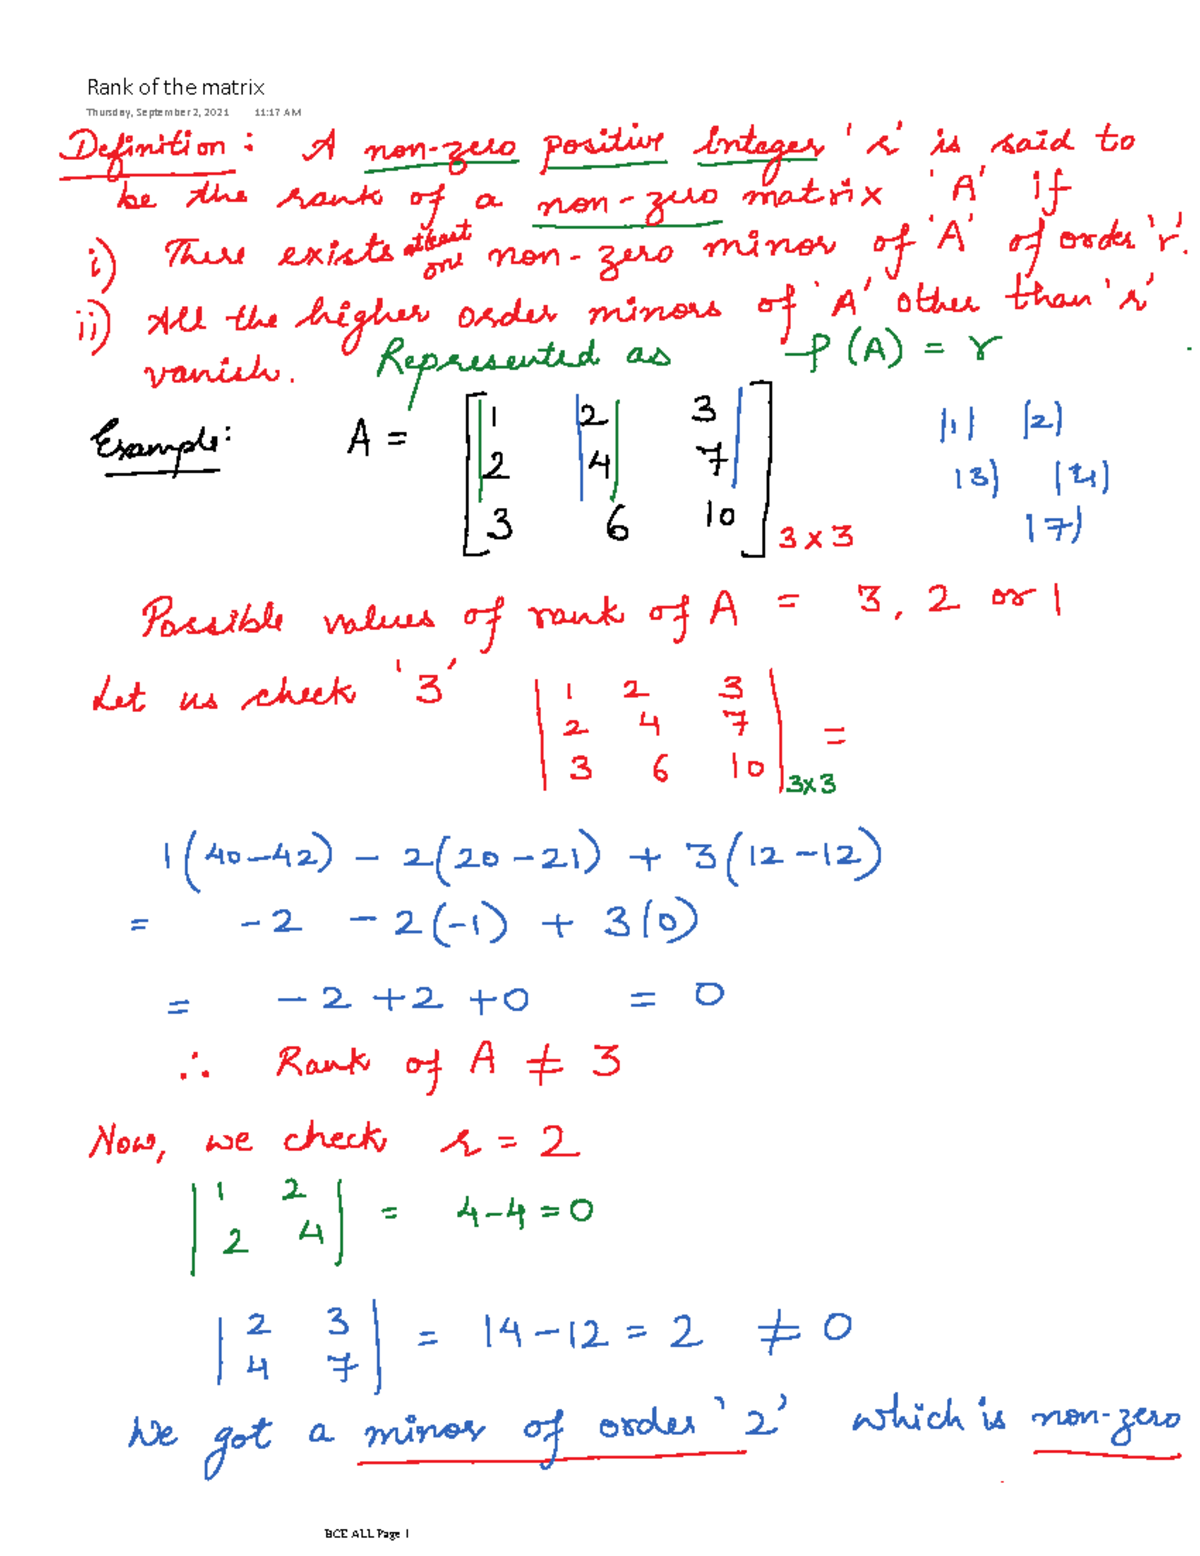 Rank of the matrix
Thursday, September 2, 2021 11:17 AM
Definition : A non-zero positive Integer 'r' is said to
be the rank of a non-zero matrix 'A' if
i) There exists atleast one non-zero minor of 'A' of order 'r'.
ii) All the higher order minors of 'A' other than 'r'
vanish. Represented as ρ(A) = r
Example: A = [1 2 3
2 4 7
3 6 10] 3x3
|1| |2|
|3| |4|
|7|
Possible values of rank of A = 3, 2 or 1
Let us check '3' |1 2 3
2 4 7
3 6 10| 3x3 =
1(40-42) - 2(20-21) + 3(12-12)
= -2 -2(-1) + 3(0)
= -2 +2 +0 = 0
∴ Rank of A ≠ 3
Now, we check r = 2
|1 2
2 4| = 4-4=0
|2 3
4 7| = 14-12 = 2 ≠ 0
We got a minor of order '2' which is non-zero
BCE ALL Page 1